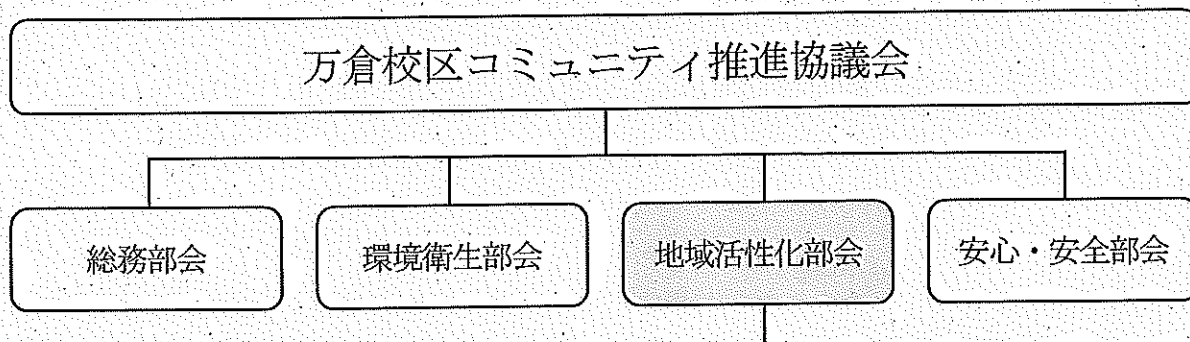 万倉校区コミュニティ推進協議会
総務部会
環境衛生部会
地域活性化部会
安心・安全部会